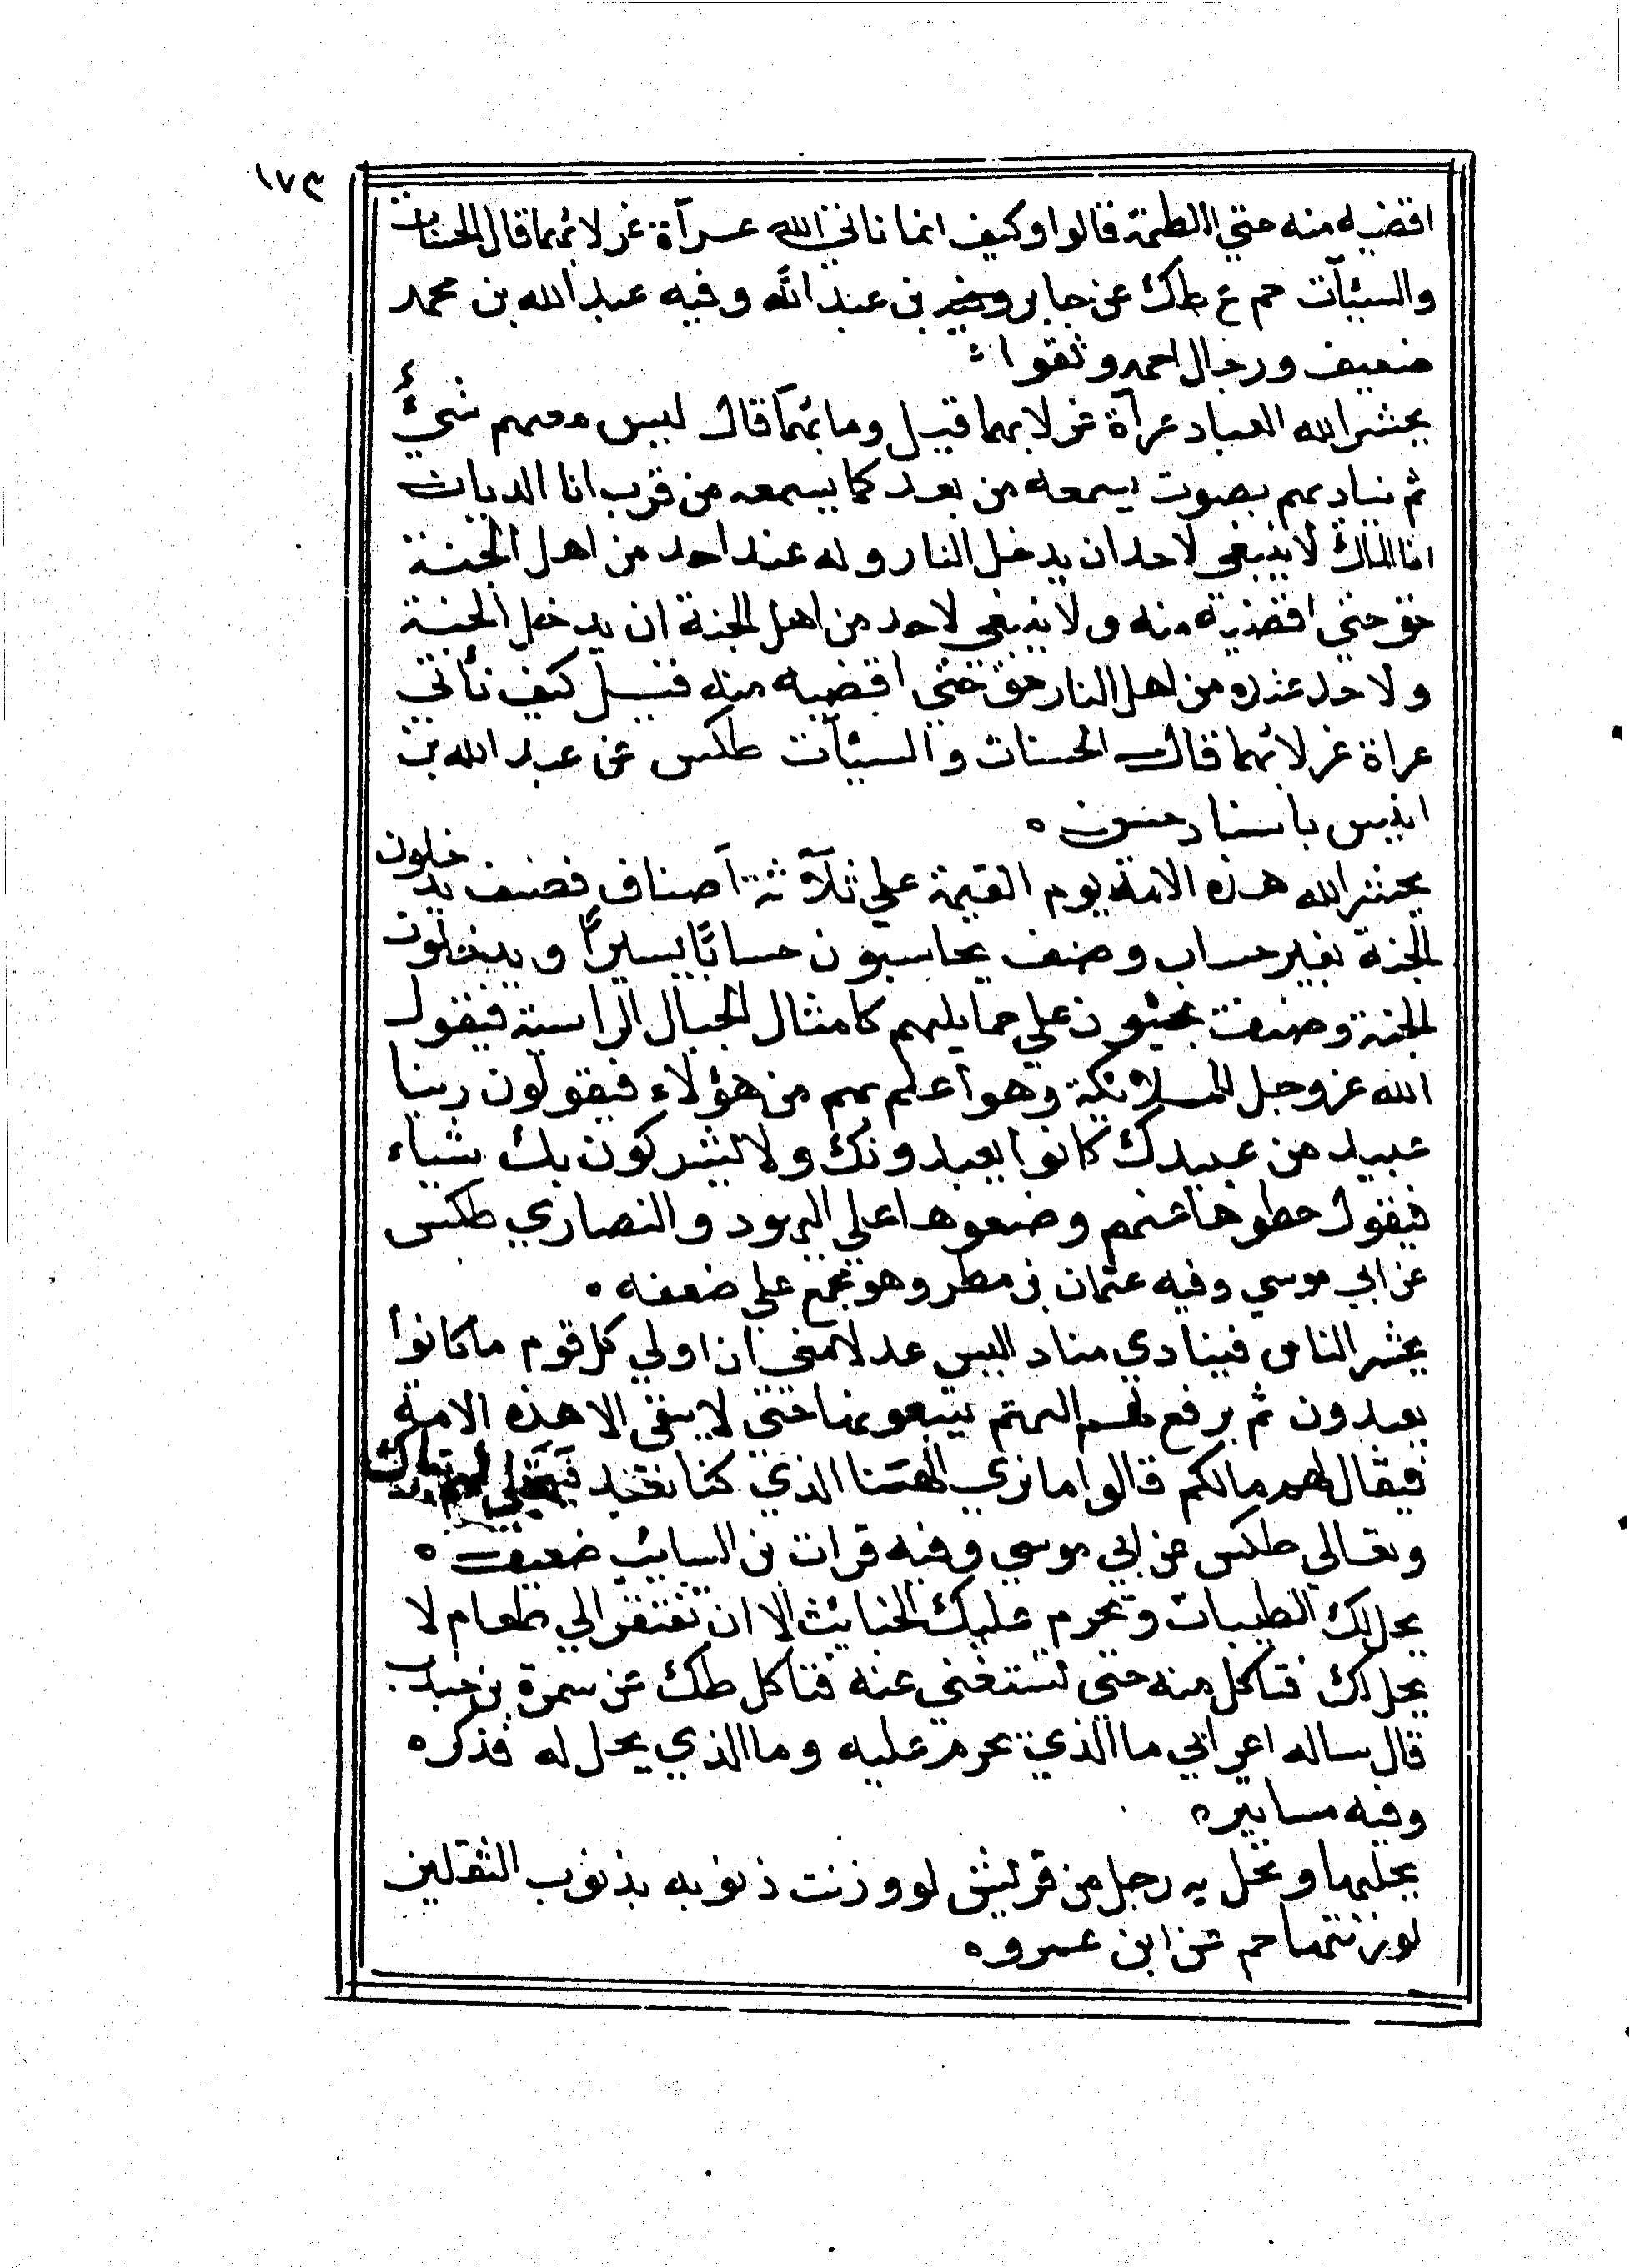 ١٧٣
اقضيه منه حتي اللطمة قالوا وكيف انما ناتي الله عراة غرلا بهما قال الحسنات
والسيئآت حم ع طك عن جابر بن عبد الله وفيه عبد الله بن محمد
ضعيف ورجال احمد وثقوا
يحشر الله العباد عراة غرلا بهما قيل وما بهما قال ليس معهم شيئ
ثم يناديهم بصوت يسمعه من بعد كما يسمعه من قرب انا الديان
انا الملك لا ينبغي لاحد ان يدخل النار وله عند احد من اهل الجنة
حق حتي اقضيه منه ولا ينبغي لاحد من اهل الجنة ان يدخل الجنة
ولاحد عنده من اهل النار حق حتي اقضيه منه قيل كيف نأتي
عراة غرلا بهما قال الحسنات والسيئآت طكس عن عبد الله بن
انيس باسناد حسن
يحشر الله هذه الامة يوم القيمة علي ثلاثة اصناف فصنف يدخلون
الجنة بغير حساب وصنف يحاسبون حسابًا يسيرًا ويدخلون
الجنة وصنف يجيئون علي حمايلهم كامثال الجبال الراسية فيقول
الله عز وجل للملائكة وهو اعلم بهم من هؤلاء فيقولون ربنا
عبيد من عبيدك كانوا يعبدونك ولا يشركون بك شياء
فيقول حطوها عنهم وضعوها علي اليهود والنصاري طكس
عن ابي موسي وفيه عثمان بن مطر وهو مجمع علي ضعفه
يحشر الناس فينادي مناد اليس عدلا مني ان اولي كل قوم ما كانوا
يعبدون ثم يرفع لهم الهتهم يتبعونها حتي لا يبقي الا هذه الامة
فيقال لهم مالكم قالوا ما نري الهنا الذي كنا نعبد فيتجلي لهم تبارك
وتعالي طكس عن ابي موسي وفيه فرات بن السايب ضعيف
يحل لك الطيبات ويحرم عليك الخبايث الا ان تفتقر الي طعام لا
يحل لك فتاكل منه حتي تستغني عنه فتاكل طك عن سمرة بن جندب
قال ساله اعرابي ما الذي يحرم عليه وما الذي يحل له فذكره
وفيه مساتير
يحلها ويحل به رجل من قريش لو وزنت ذنوبه بذنوب الثقلين
لوزنتها حم عن ابن عمرو